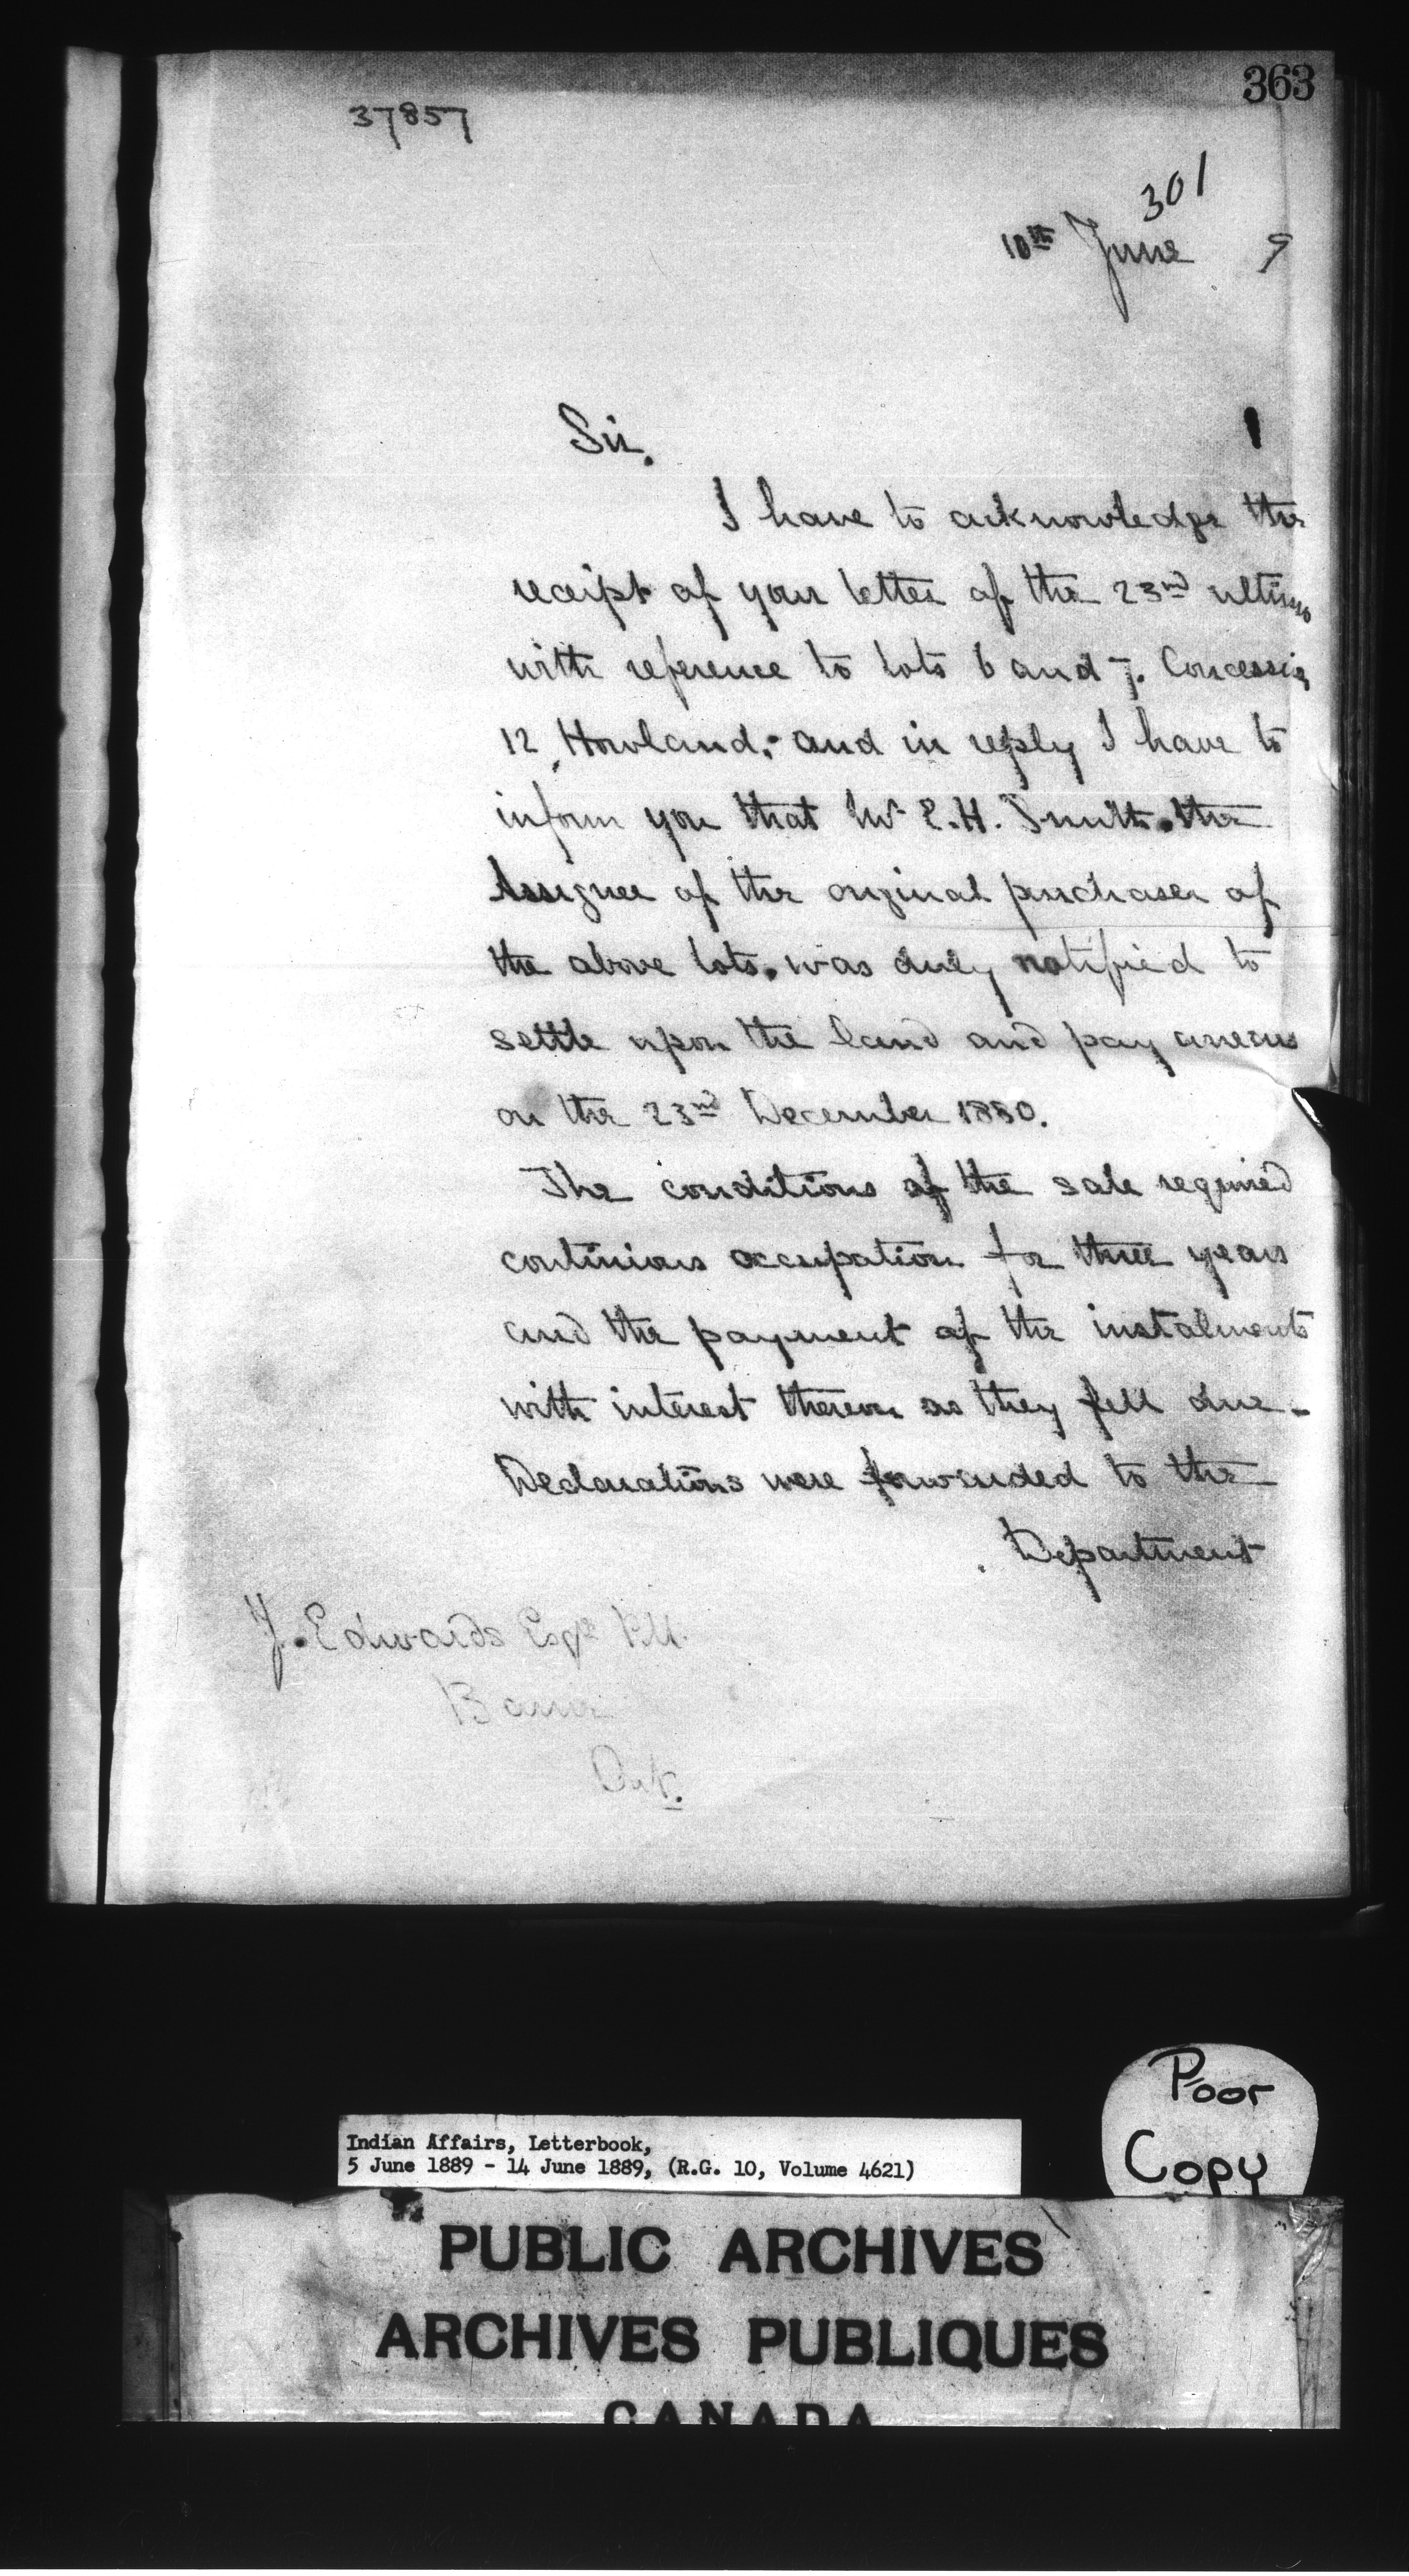 363
37857
301
10th June 9
Sir.
I have to acknowledge the
receipt of your letter of the 23rd ultimo
with reference to lots 6 and 7. Concession
12, Howland, and in reply I have to
inform you that Mr E.H. Smith. the
Assignee of the original purchaser of
the above lots, was duly notified to
settle upon the land and pay arrears
on the 23rd December 1880.
The conditions of the sale required
continious occupation for three years
and the payment of the instalments
with interest thereon as they fell due -
Declarations were forwarded to the
Department
J. Edwards Esqre
Barrie
Ont.
Poor
Copy
Indian Affairs, Letterbook,
5 June 1889 - 14 June 1889, (R.G. 10, Volume 4621)
PUBLIC ARCHIVES
ARCHIVES PUBLIQUES
CANADA